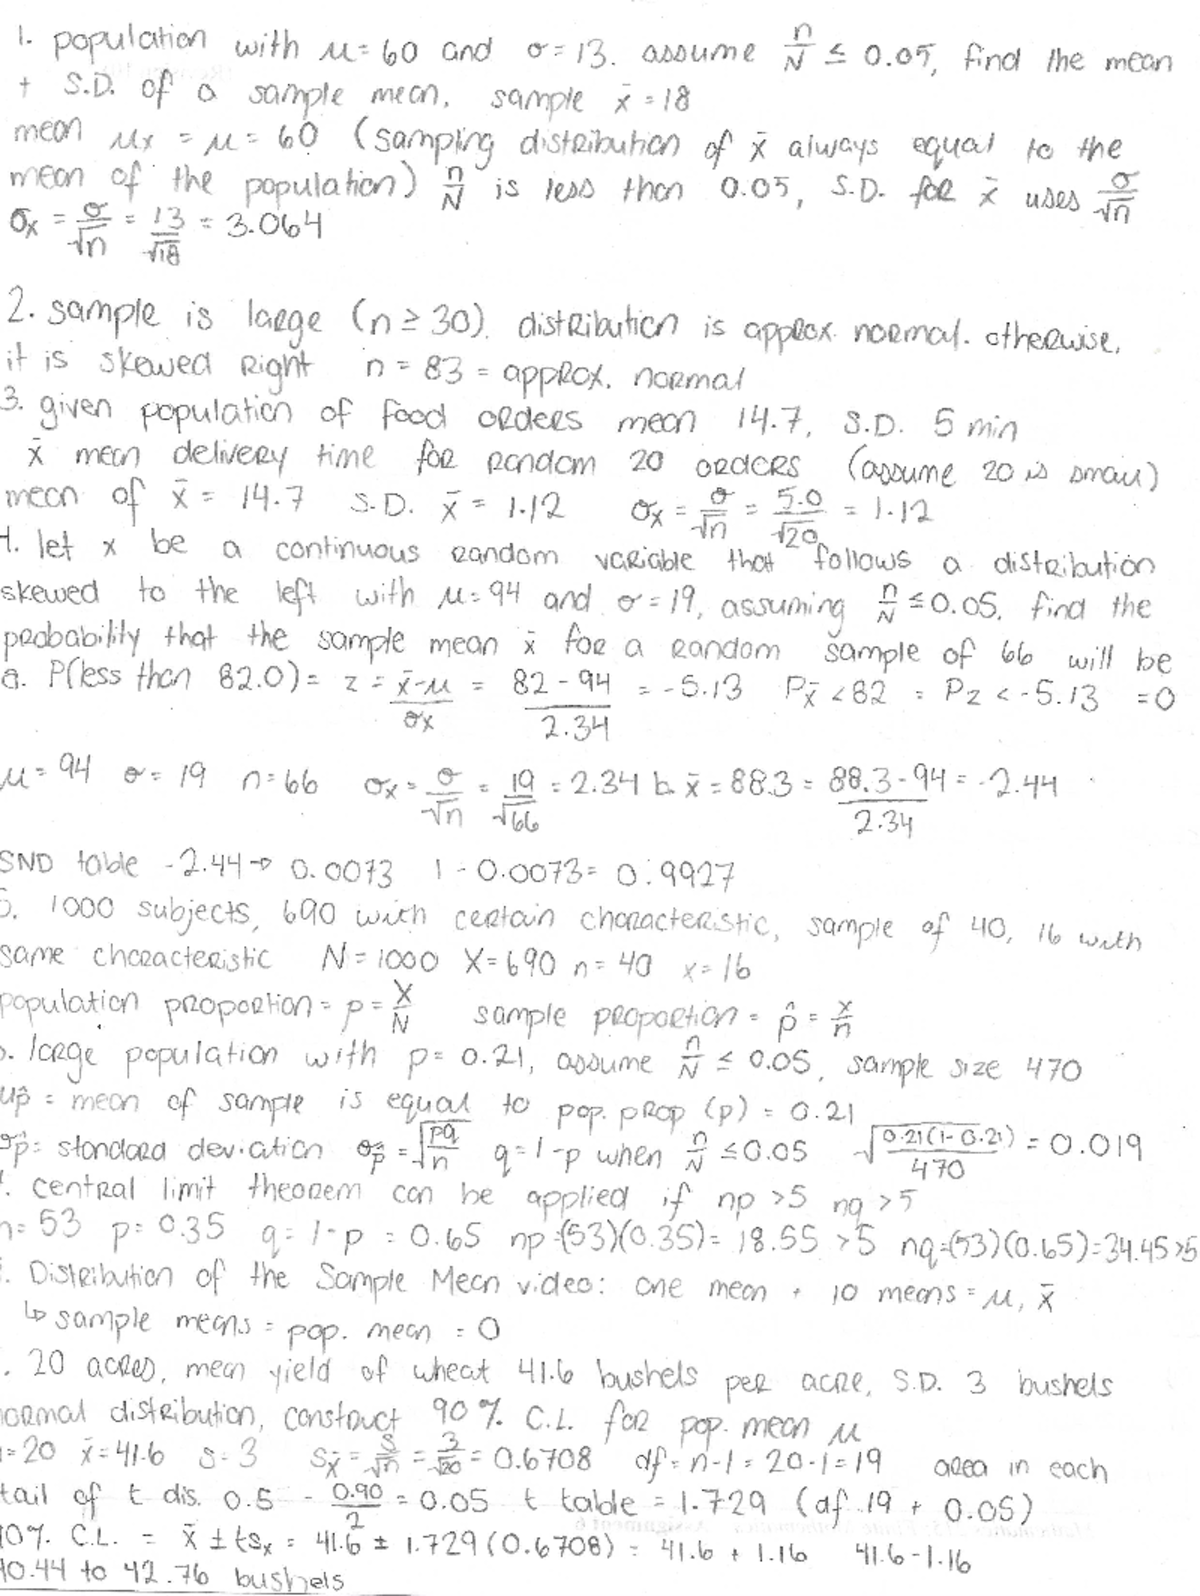 1. population with μ=60 and σ=13. assume n/N ≤ 0.05, find the mean
+ S.D. of a sample mean. sample x̄ =18
mean μx = μ = 60 (sampling distribution of x̄ always equal to the
mean of the population) n/N is less than 0.05, S.D. for x̄ uses σ/√n
σx = σ/√n = 13/√18 = 3.064
2. sample is large (n ≥ 30). distribution is approx. normal. otherwise,
it is skewed right n = 83 = approx. normal
3. given population of food orders mean 14.7, S.D. 5 min
x̄ mean delivery time for random 20 orders (assume 20 is small)
mean of x̄ = 14.7 S.D. x̄ = 1.12 σx = σ/√n = 5.0/√20 = 1.12
4. let x be a continuous random variable that follows a distribution
skewed to the left with μ=94 and σ=19, assuming n/N ≤0.05. find the
probability that the sample mean x̄ for a random sample of 66 will be
a. P(less than 82.0)= z = x̄-μ/σx = 82-94/2.34 = -5.13 Px̄ <82 = Pz < -5.13 =0
μ=94 σ= 19 n=66 σx= σ/√n = 19/√66 = 2.34 b. x̄ = 88.3 = 88.3-94/2.34 = -2.44
SND table -2.44→ 0.0073 1-0.0073= 0.9927
5. 1000 subjects, 690 with certain characteristic, sample of 40, 16 with
same characteristic N=1000 X=690 n=40 x=16
population proportion= p= X/N sample proportion = p̂ = x/n
. large population with p= 0.21, assume n/N ≤ 0.05, sample size 470
μp̂ = mean of sample is equal to pop. prop (p) = 0.21
σp̂= standard deviation σp̂ =√pq/n q=1-p when n/N ≤0.05 √0.21(1-0.21)/470 = 0.019
. central limit theorem can be applied if np >5 nq >5
n= 53 p= 0.35 q= 1-p = 0.65 np=(53)(0.35)= 18.55 >5 nq=(53)(0.65)=34.45>5
. Distribution of the Sample Mean video: one mean + 10 means = μ, x̄
↳ sample means = pop. mean = 0
. 20 acres, mean yield of wheat 41.6 bushels per acre, S.D. 3 bushels
normal distribution, construct 90% C.L. for pop. mean μ
n=20 x̄=41.6 s=3 sx̄= s/√n = 3/√20 = 0.6708 df= n-1 = 20-1=19 area in each
tail of t dis. 0.5 - 0.90/2 = 0.05 t table = 1.729 (df 19 + 0.05)
90% C.L. = x̄ ± tsx = 41.6 ± 1.729(0.6708) = 41.6 + 1.16 41.6-1.16
40.44 to 42.76 bushels